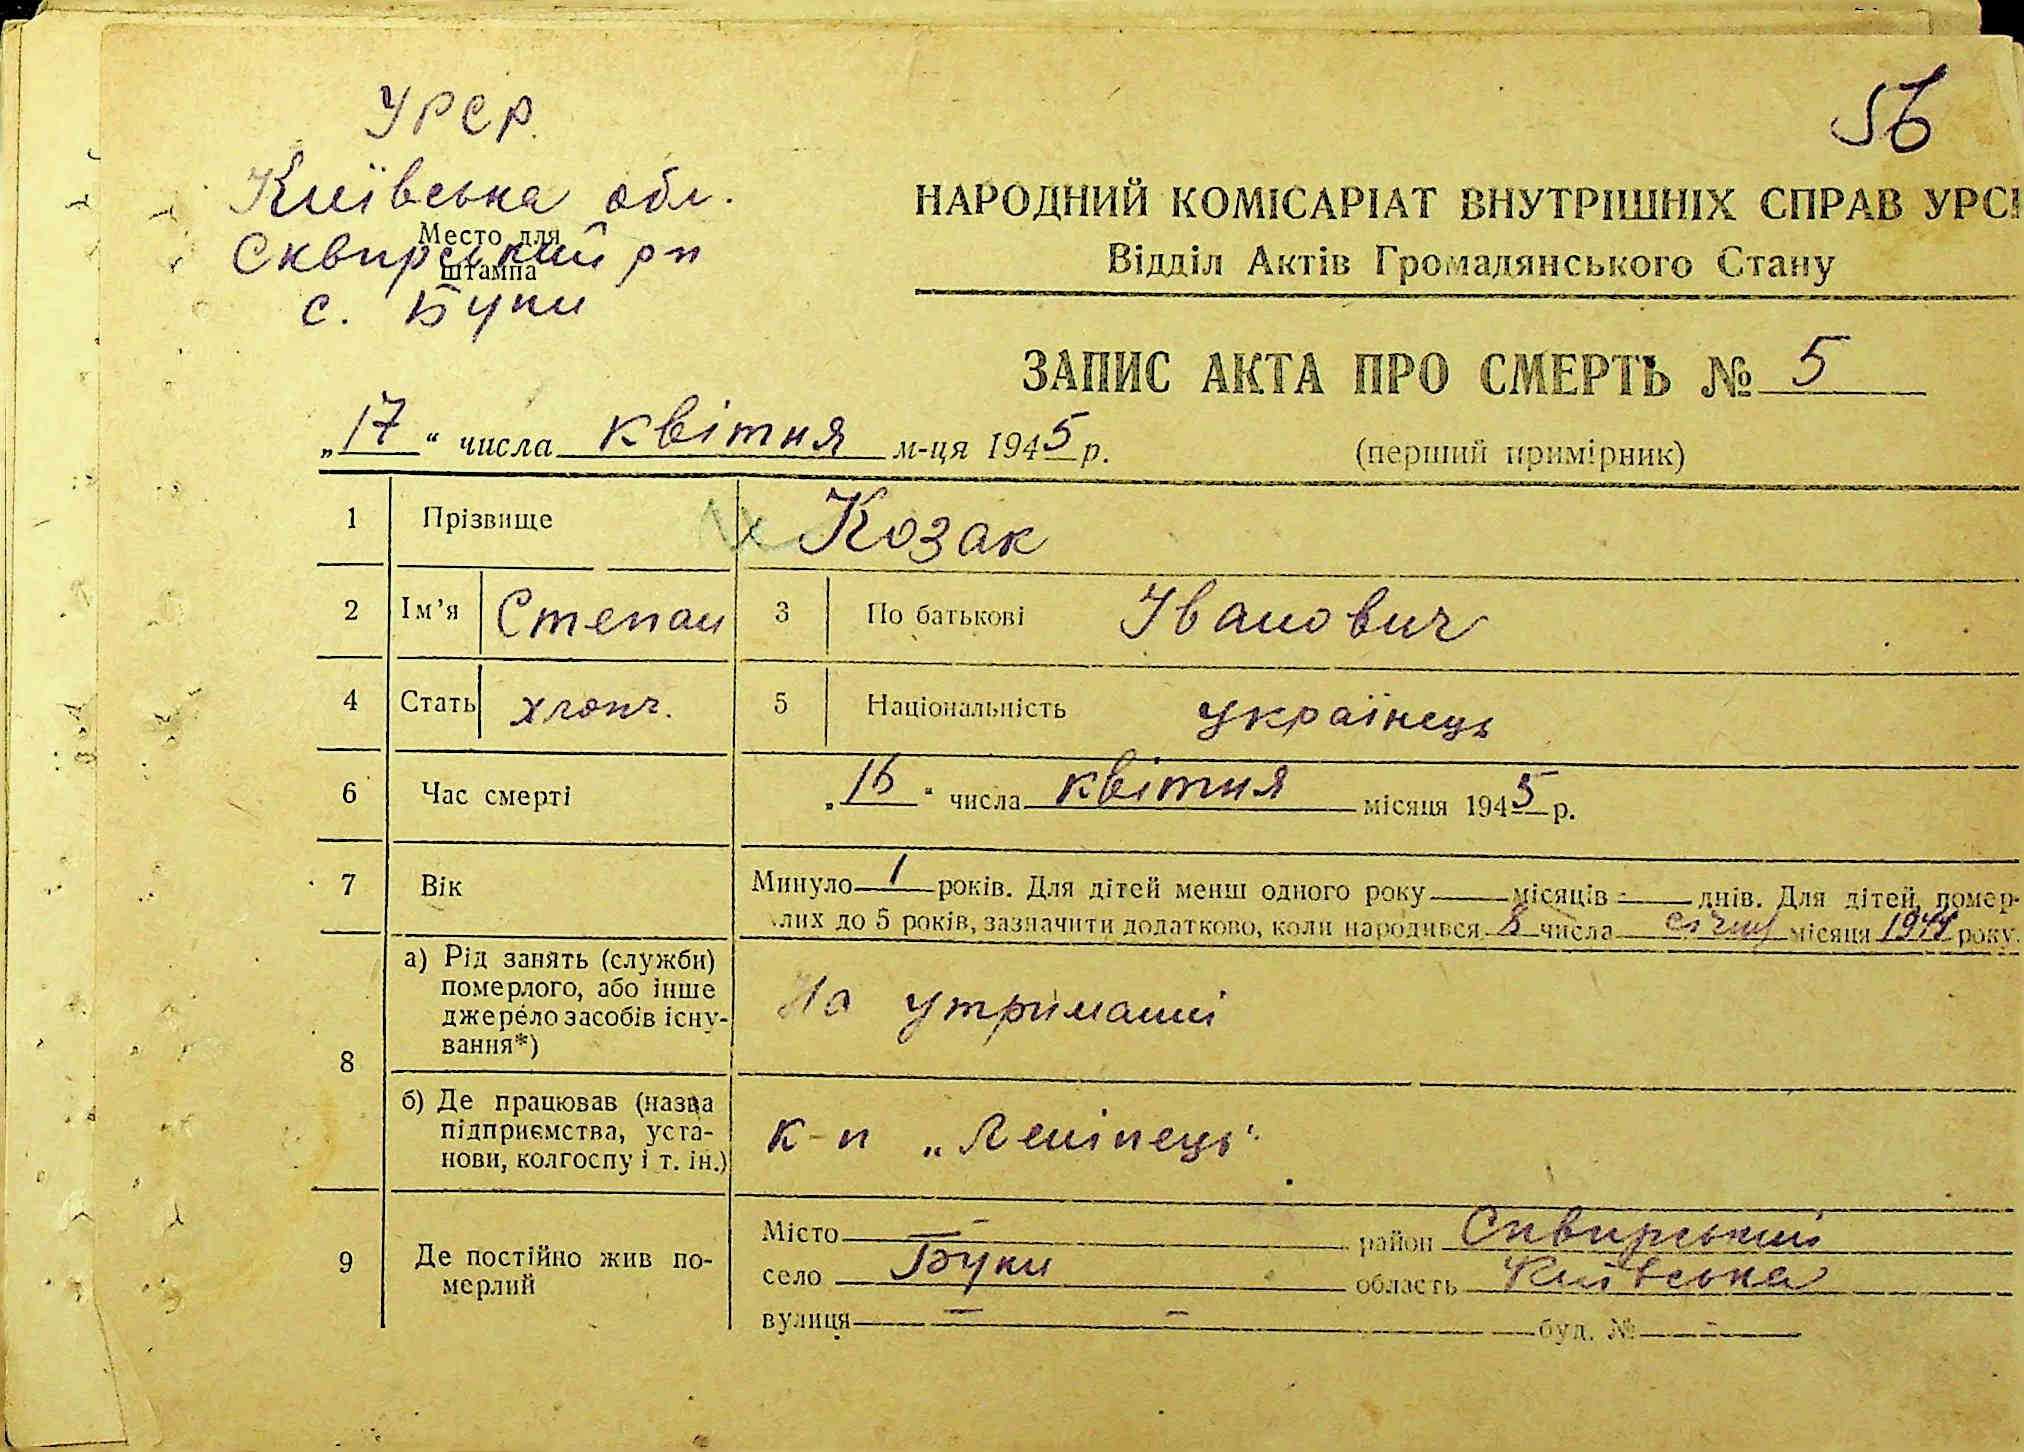 УРСР
56
Київська обл.
Место для
штампа
Сквирський рн
с. Буки
НАРОДНИЙ КОМІСАРІАТ ВНУТРІШНІХ СПРАВ УРСР
Відділ Актів Громадянського Стану
ЗАПИС АКТА ПРО СМЕРТЬ № 5
„17“ числа квітня м-ця 1945 р.
(перший примірник)
1 Прізвище Козак
2 Ім’я Степан 3 По батькові Іванович
4 Стать хлопч. 5 Національність українець
6 Час смерті „16“ числа квітня місяця 1945 р.
7 Вік Минуло 1 років. Для дітей менш одного року місяців - днів. Для дітей, помер-
лих до 5 років, зазначити додатково, коли народився 8 числа січня місяця 1944 року.
8 а) Рід занять (служби)
померлого, або інше
джерело засобів існу-
вання*)
На утриманні
б) Де працював (назва
підприємства, уста-
нови, колгоспу і т. ін.)
к-п „Ленінець“
9 Де постійно жив по-
мерлий
Місто - район Сквирський
село Буки область Київська
вулиця - - буд. № -